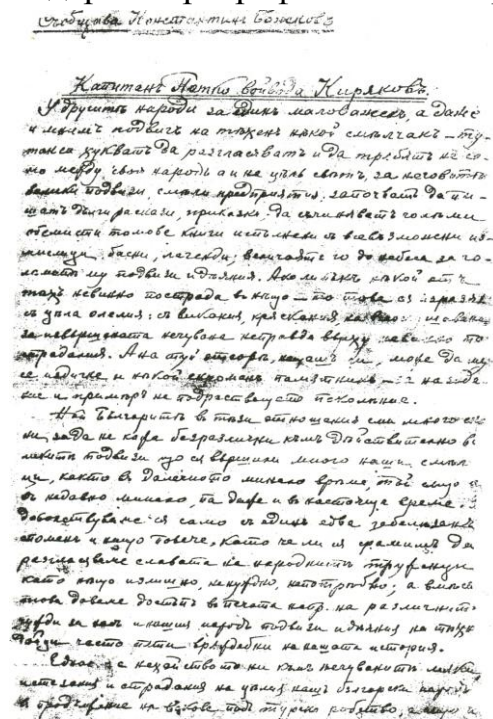 Съобщава Константинъ Божковъ
Капитанъ Петко войвода Киряковъ.
У другитѣ народи за единъ маловаженъ, а даже
и мнимъ подвигъ на тѣхенъ нѣкой смѣлчакъ — ту-
такси хукватъ да разгласяватъ и да тръбятъ не са-
мо между своя народъ а и на цѣлъ свѣтъ, за неговитѣ
велики подвизи, смѣли предприятия, започватъ да пи-
шатъ дълги раскази, приказки, да съчиняватъ голѣми
обемисти томове книги испълнени съ всевъзможни из-
мислици, басни, легенди; величаятъ го до небеса за го-
лѣмитѣ му подвизи и дѣяния. Ако ли пъкъ нѣкой отъ
тѣхъ невинно пострада въ нѣщо — то това се
съ цѣла олелия: съ викания, кряскания,
за извършената нечувана неправда върху
страдания. А на туй отгоре, може да му
се издигне и нѣкой скроменъ паметникъ — за назида-
ние и примѣръ на подрастващето поколѣние.
Ний Българитѣ въ тази отношения сми много
ни, за да не кажа безразлични къмъ дѣйствително ве-
ликитѣ подвизи що съ вършили много наши смѣл
ци, както въ далечното минало врѣме, тъй също и
въ недавно минало, па даже и въ настояще време.
Доволствуваме ся само съ единъ едва забелѣженъ
споменъ и нищо повече, като че ли ся срамимъ да
разгласяваме славата на народнитѣ труженици
като нѣщо излишно, ненуждно, непотрѣбно; а вмѣсто
това даваме достѣпъ въ печата напр. на различнитѣ
чужди за насъ и нашия народъ подвизи и дѣяния на тѣхни
често пѫти на нашата история.
нехайството ни къмъ нечуванитѣ
истезания и страдания на цѣлия нашъ български народъ
въ продължение на вѣкове подъ турско робство, а също и